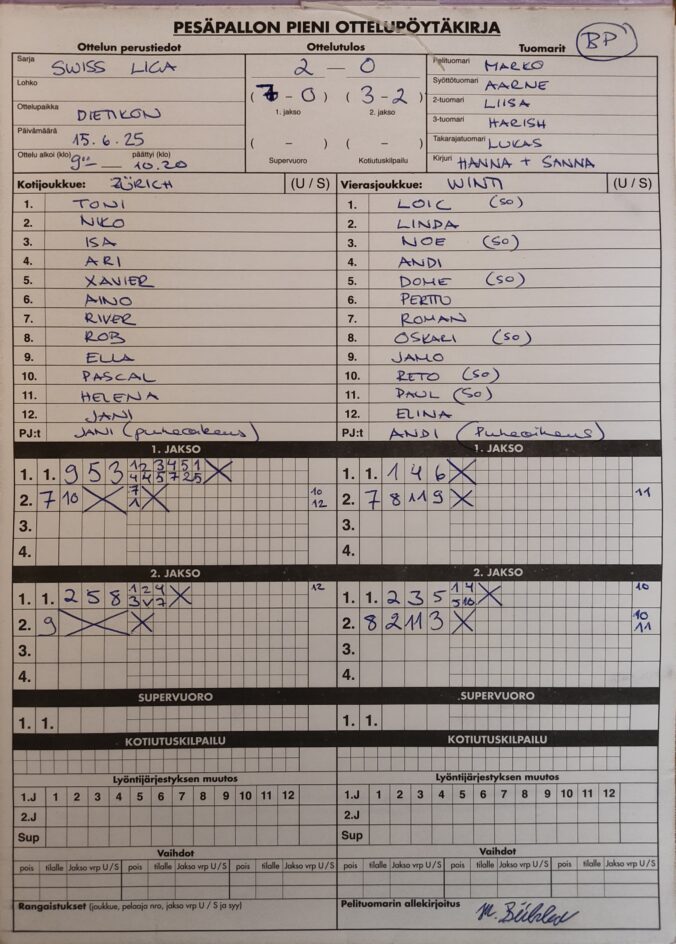 PESÄPALLON PIENI OTTELUPÖYTÄKIRJA
Ottelun perustiedot Ottelutulos Tuomarit BP
Sarja SWISS LIGA 2 – 0 Pelituomari MARKO
Lohko Syöttötuomari AARNE
(7 - 0) (3 - 2) 2-tuomari LIISA
Ottelupaikka DIETIKON 1. jakso 2. jakso 3-tuomari HARISH
Päivämäärä 15.6.25 ( – ) ( – ) Takarajatuomari LUKAS
Ottelu alkoi (klo) 9 — päättyi (klo) 10.20 Supervuoro Kotiutuskilpailu Kirjuri HANNA + SANNA
Kotijoukkue: ZÜRICH (U / S) Vierasjoukkue: WINTI (U / S)
1. TONI 1. LOIC (SO)
2. NIKO 2. LINDA
3. ISA 3. NOE (SO)
4. ARI 4. ANDI
5. XAVIER 5. DOME (SO)
6. AINO 6. PERTTU
7. RIVER 7. ROMAN
8. ROB 8. OSKARI (SO)
9. ELLA 9. JAMO
10. PASCAL 10. RETO (SO)
11. HELENA 11. PAUL (SO)
12. JANI 12. ELINA
PJ:t JANI (puheoikeus) PJ:t ANDI (Puheoikeus)
1. JAKSO 1. JAKSO
1. 1. 9 5 3 1. 1. 1 4 6 X
2. 7 10 X 2. 7 8 11 9 X 11
10
12
3. 3.
4. 4.
2. JAKSO 2. JAKSO
1. 1. 2 5 8 12 1. 1. 2 3 5 10
2. 9 X 2. 8 2 11 3 X 10
11
3. 3.
4. 4.
SUPERVUORO SUPERVUORO
1. 1. 1. 1.
KOTIUTUSKILPAILU KOTIUTUSKILPAILU
Lyöntijärjestyksen muutos Lyöntijärjestyksen muutos
1.J 1 2 3 4 5 6 7 8 9 10 11 12 1.J 1 2 3 4 5 6 7 8 9 10 11 12
2.J 2.J
Sup Sup
Vaihdot Vaihdot
pois tilalle Jakso vrp U / S pois tilalle Jakso vrp U / S pois tilalle Jakso vrp U / S pois tilalle Jakso vrp U / S pois tilalle Jakso vrp U / S pois tilalle Jakso vrp U / S
Rangaistukset (joukkue, pelaaja nro, jakso vrp U / S ja syy) Pelituomarin allekirjoitus